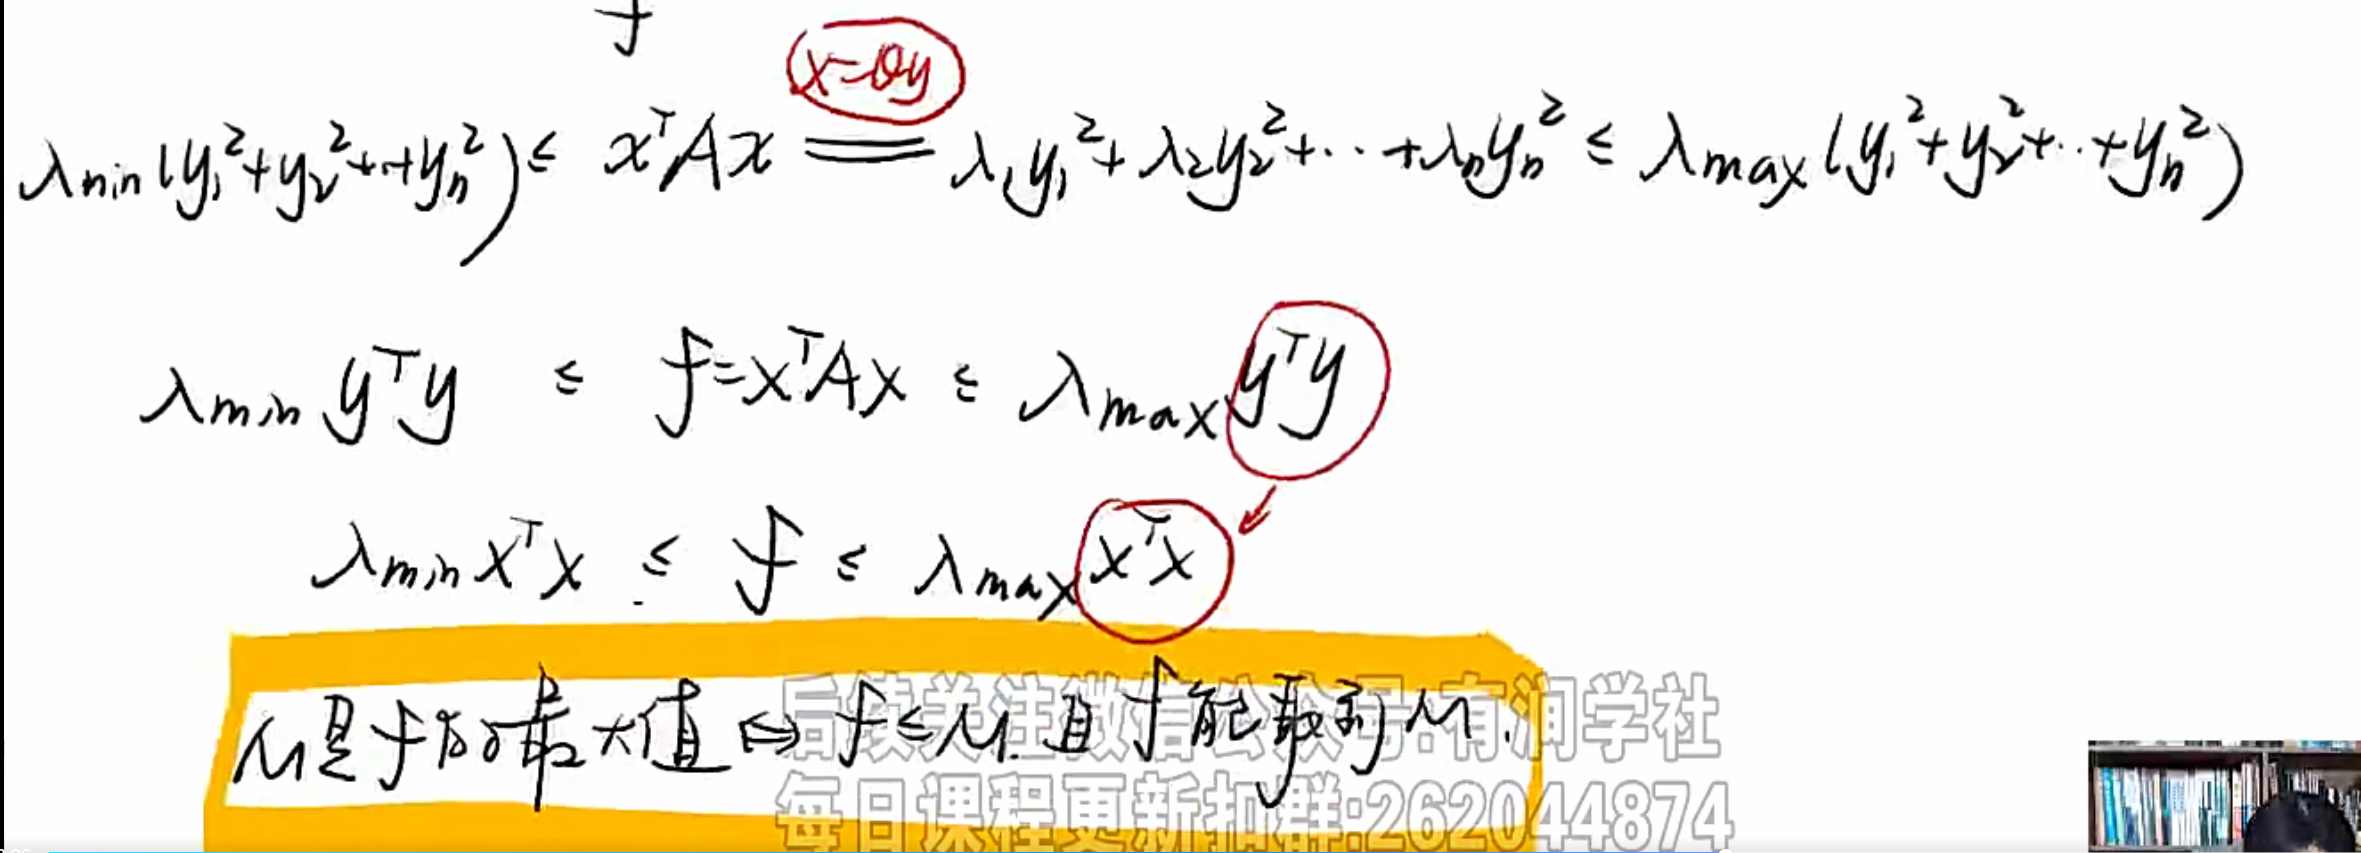 f
x=Qy
λmin(y₁²+y₂²+··+yₙ²)≤ xᵀAx = λ₁y₁²+λ₂y₂²+···+λₙyₙ² ≤ λmax(y₁²+y₂²+··+yₙ²)
λmin yᵀy ≤ f=xᵀAx ≤ λmax yᵀy
λmin xᵀx ≤ f ≤ λmax xᵀx
M是f的最大值⇔f≤M.且f能取到M.
后续关注微信公众号:有润学社
每日课程更新扣群:262044874